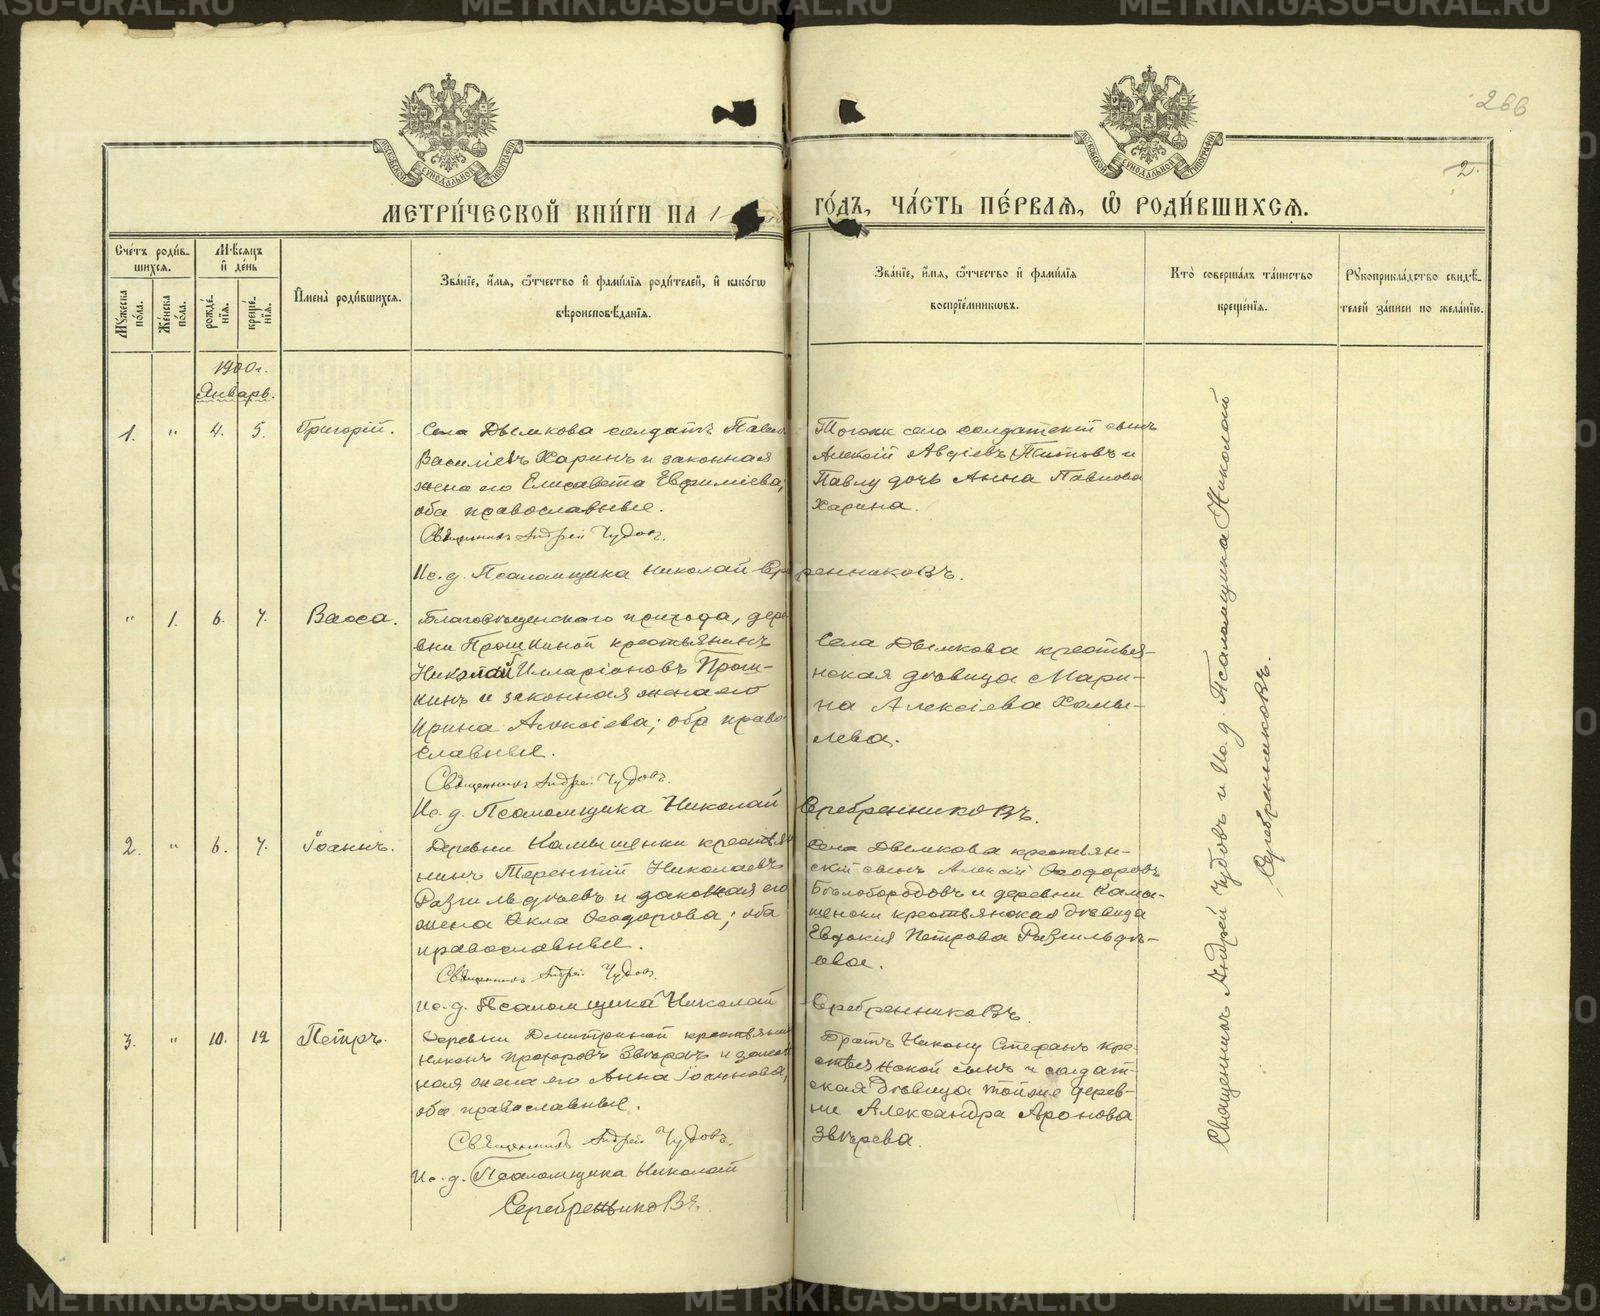 266
2.
МЕТРИ́ЧЕСКОЙ КНИ́ГИ НА 1
ГО́ДЪ, ЧА́СТЬ ПЕ́РВАѦ, Ѡ҆ РОДИ́ВШИХСѦ.
Сче́тъ роди́в-
шихсѧ.
Мѣ́сѧцъ
и҆ де́нь
Мꙋ́жеска по́ла.
Же́нска по́ла.
рожде́-
нїѧ.
креще́-
нїѧ.
И҆мена̀ роди́вшихсѧ.
Зва́нїе, и҆́мѧ, ѻ҆́тчество и҆ фами́лїѧ роди́телей, и҆ како́гѡ
вѣроисповѣ́данїѧ.
Зва́нїе, и҆́мѧ, ѻ҆́тчество и҆ фами́лїѧ
воспрїе́мникѡвъ.
Кто̀ соверша́лъ та́инство
креще́нїѧ.
Рꙋкоприкла́дство свидѣ́-
телей за́писи по жела́нїю.
1900 г.
Январь.
1. " 4. 5. Григорій.
Села Дымкова солдатъ Павелъ
Василіевъ Харинъ и законная
жена его Елисавета Евфиміева,
оба православные.
Священникъ Андрей Чудовъ.
Ис. д. Псаломщика Николай Серебренниковъ.
Тогоже села солдатскій сынъ
Алексій Авдіевъ Титовъ и
Павлу дочь Анна Павлова
Харина.
" 1. 6. 7. Васса.
Благовѣщенскаго прихода, дере-
вни Прошкиной крестьянинъ
Николай Илларіоновъ Прош-
кинъ и законная жена его
Ирина Алексіева; оба право-
славные.
Священникъ Андрей Чудовъ.
Ис. д. Псаломщика Николай Серебренниковъ.
Села Дымкова крестья-
нская дѣвица Мари-
на Алексіева Хамы-
лева.
2. " 6. 7. Іоаннъ.
Деревни Камышенки крестья-
нинъ Терентій Николаевъ
Разгильдѣевъ и законная его
жена Ѳекла Ѳеодорова; оба
православные.
Священникъ Андрей Чудовъ.
Ис. д. Псаломщика Николай Серебренниковъ.
Села Дымкова крестьян-
скій сынъ Алексій Ѳеодоровъ
Бѣлобородовъ и деревни Камы-
шенки крестьянская дѣвица
Евдокія Петрова Разгильдѣ-
ева.
3. " 10. 12 Петръ.
Деревни Димитриной крестьянинъ
Никонъ Прохоровъ Звѣревъ и закон-
ная жена его Анна Іоаннова,
оба православные.
Священникъ Андрей Чудовъ.
Ис. д. Псаломщика Николай
Серебренниковъ.
Братъ Никону Стефанъ кре-
стьянской сынъ и солдат-
ская дѣвица тойже дерев-
ни Александра Аронова
Звѣрева.
Священникъ Андрей Чудовъ и Ис. д. Псаломщика Николай
Серебренниковъ.
METRIKI.GASO-URAL.RU